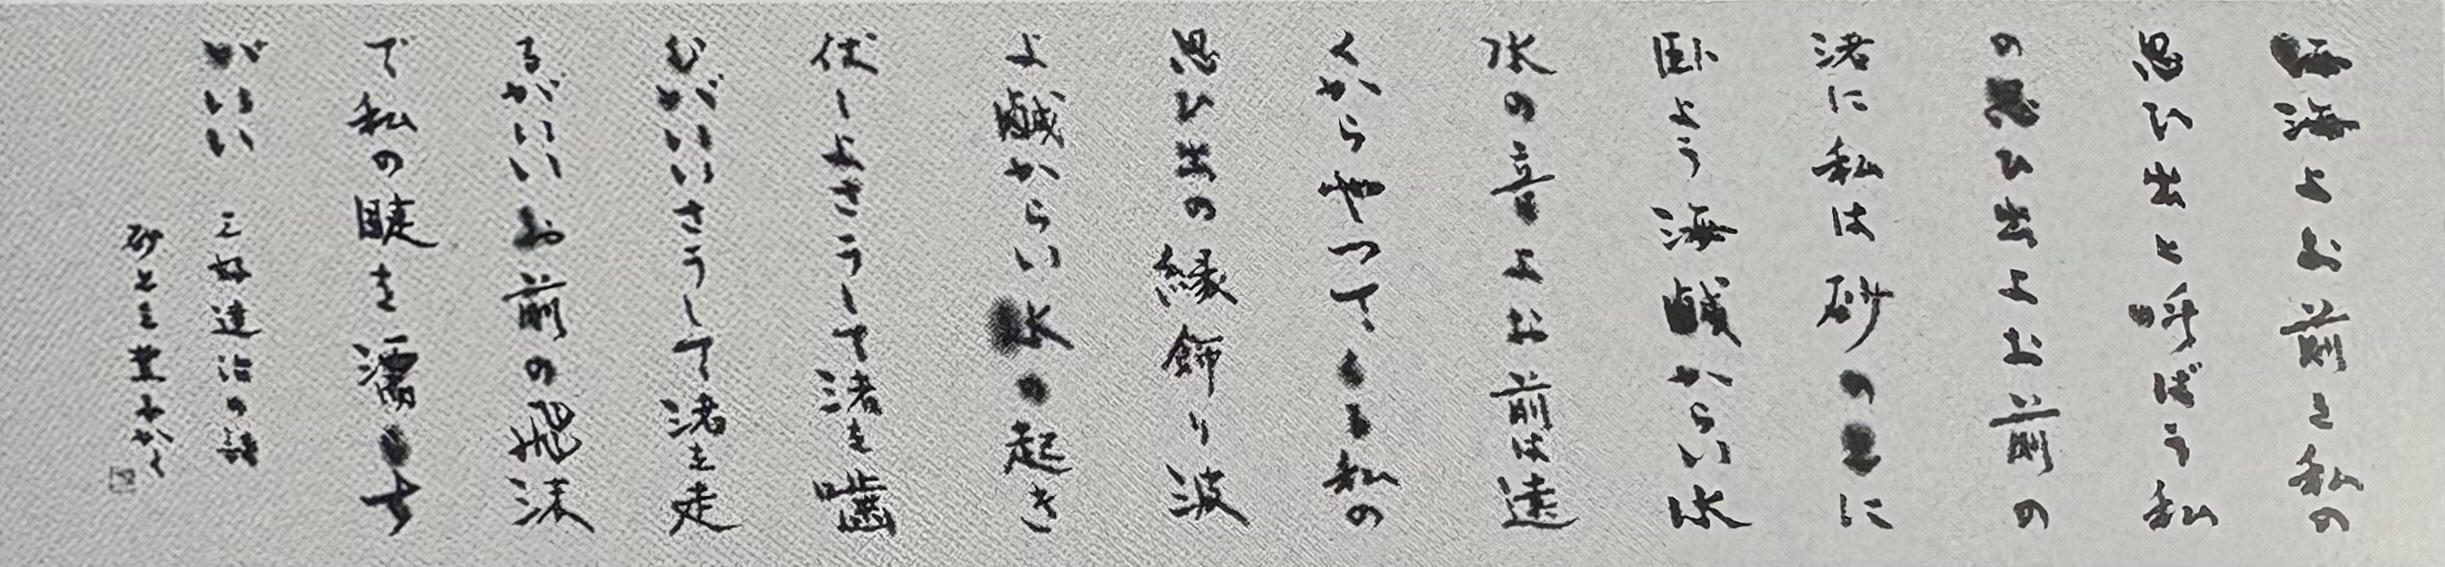 海 海よお前を私の
思ひ出と呼ばう 私
の思ひ出よ お前の
渚に私は砂の上に
臥よう 海 鹹からい水
水の音よ お前は遠
くからやつてくる 私の
思ひ出の縁飾り 波
よ 鹹からい水の起き
伏しよ さうして渚を噛
むがいい さうして渚を走
るがいい お前の飛沫
で私の睫を濡らす
がいい 三好達治の詩
砂と  かく